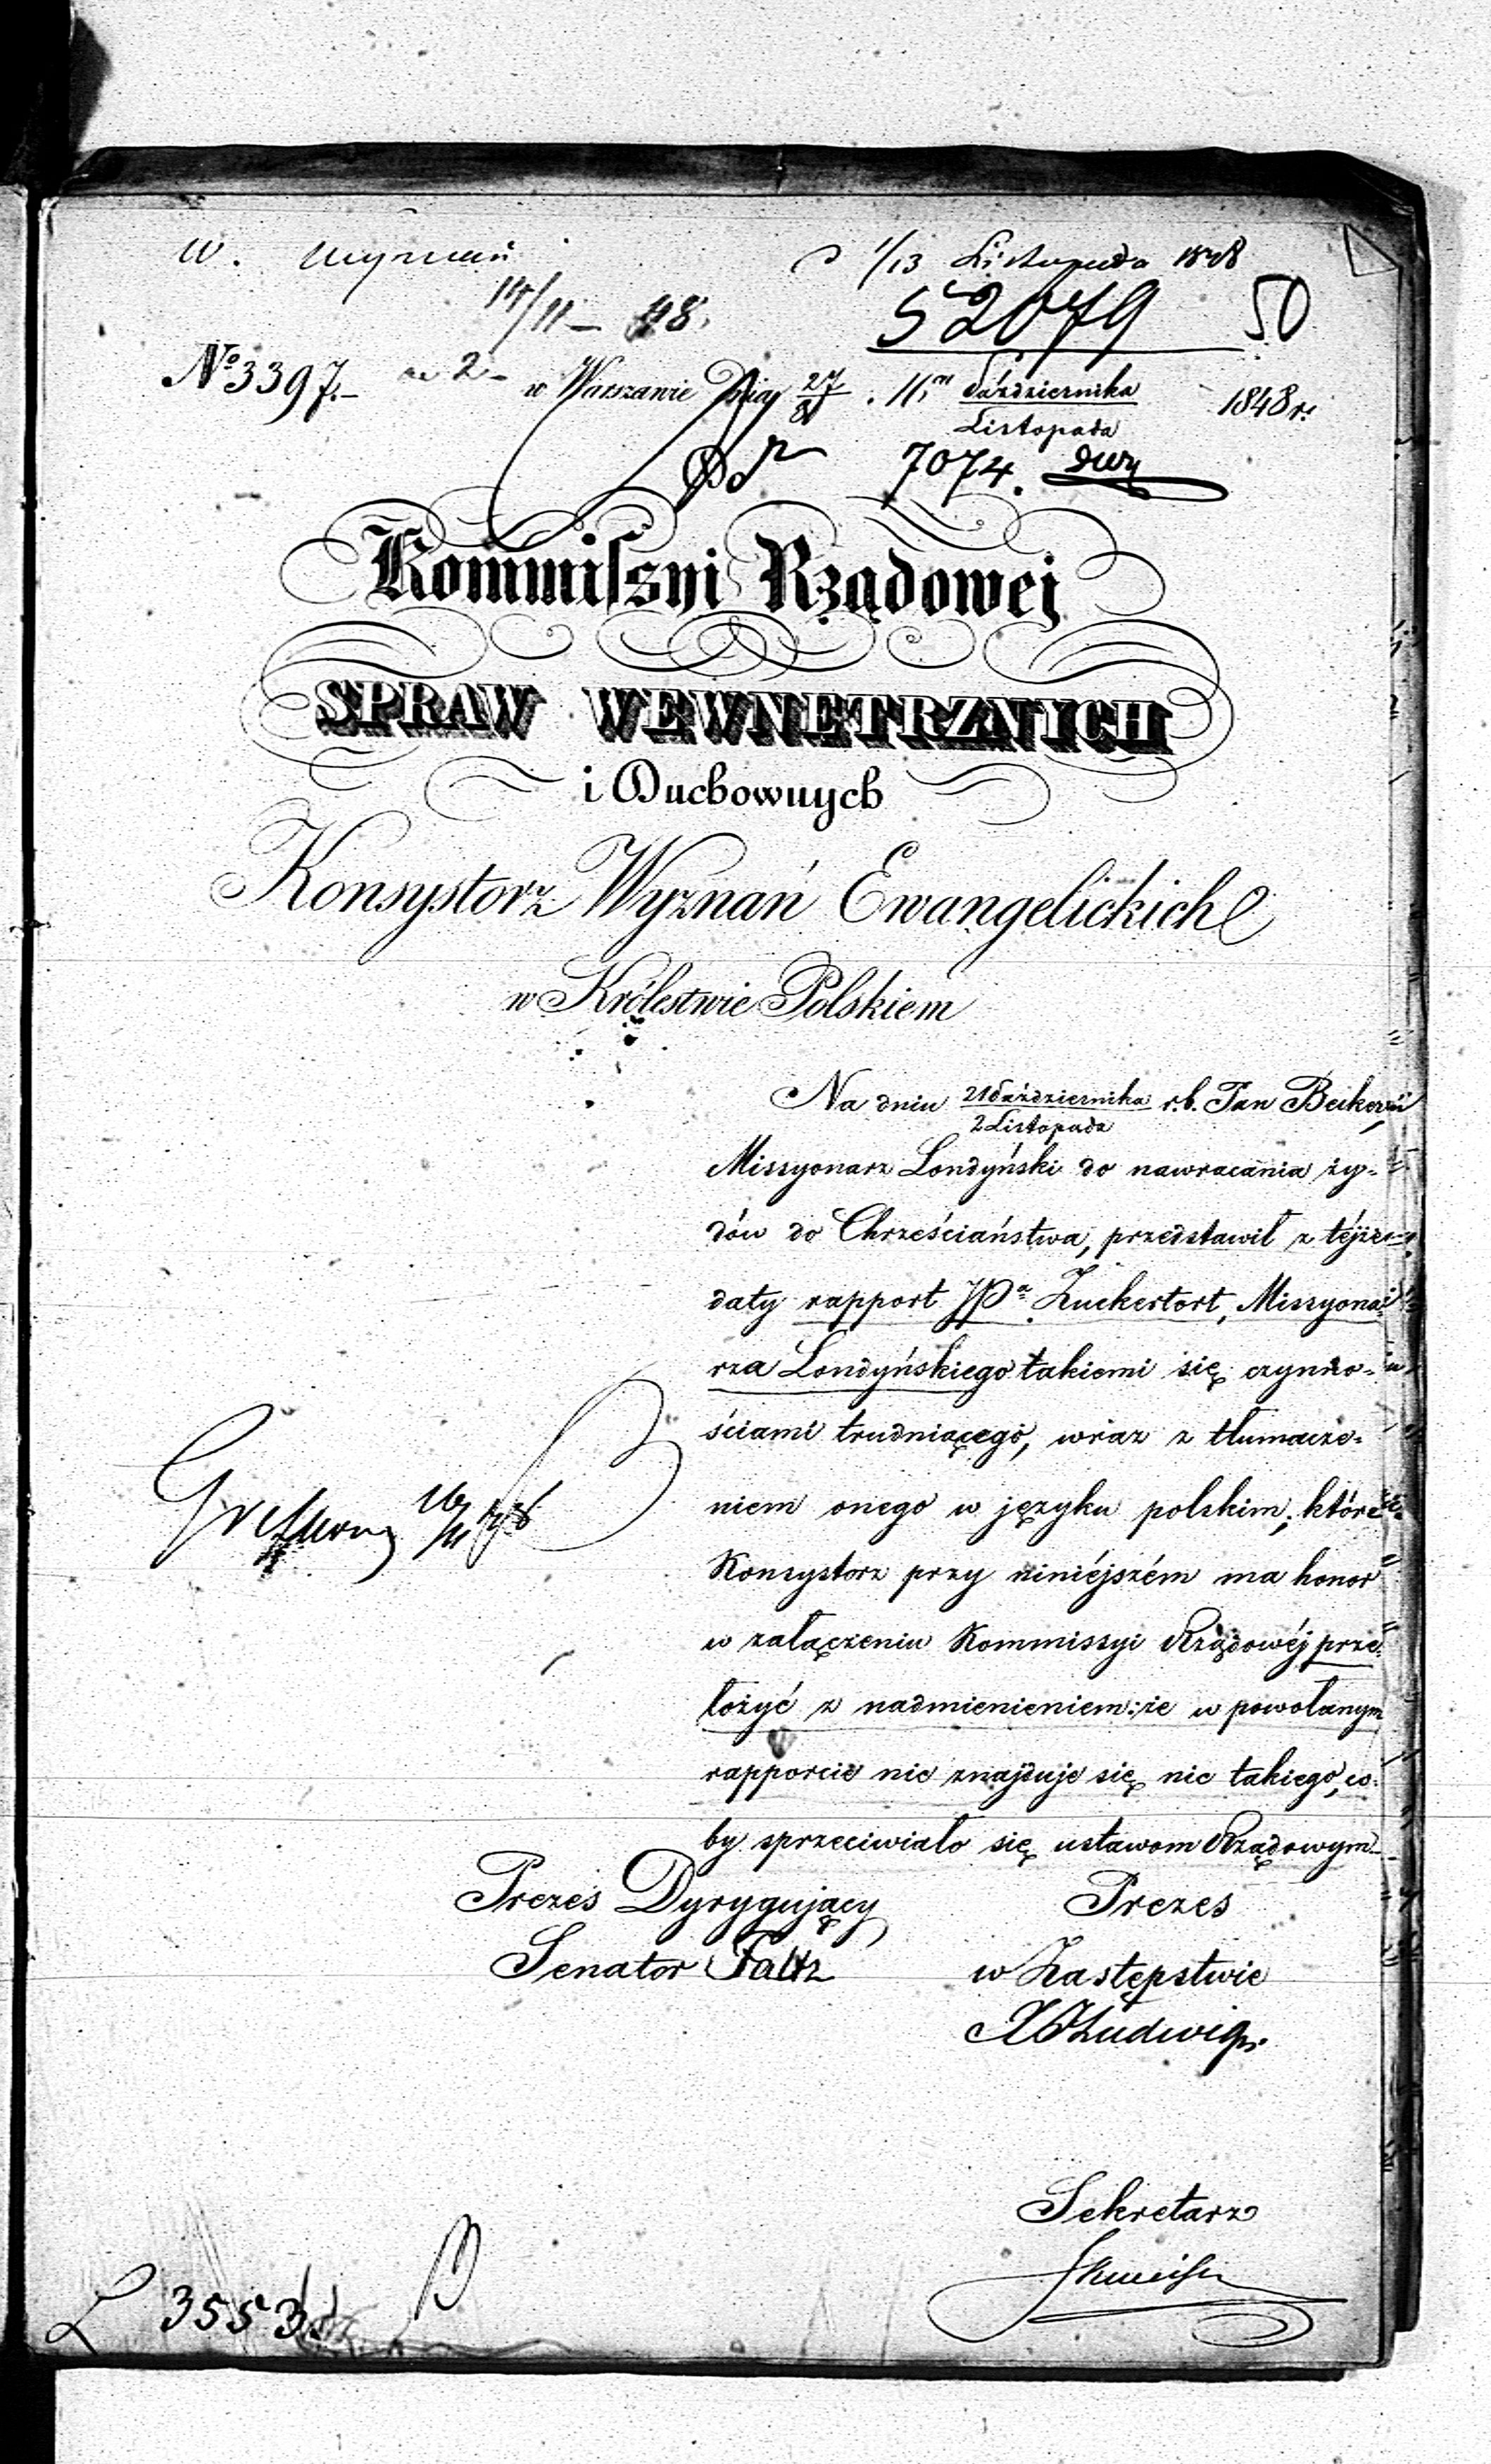 W. Wyznań
D 1/13 Listopada 1848
14/11 – 48.
52079 50
№ 3397.–
w Warszawie Dnia 27/8 Października/Listopada 1848 r.
7074.
Kommiſsyi Rządowej
SPRAW WEWNETRZNYCH
i Duchownych
Konsystorz Wyznań Ewangelickich
w Królestwie Polskiem
Na dniu 21 Października/2 Listopada r.b. Pan Becker
Missyonarz Londyński do nawracania ży-
dów do Chrześciaństwa, przedstawił z téjże
daty rapport JPa Zuckertort, Missyona-
rza Londyńskiego takiemi się czynno-
ściami trudniącego, wraz z tłumacze-
niem onego w języku polskim, które
Konsystorz przy niniéjszém ma honor
w załączeniu Kommissyi Rządowéj prze-
łożyć z nadmienieniem: że w powołanym
rapporcie nie znajduje się nic takiego, co-
by sprzeciwiało się ustawom Rządowym
Prezes Dyrygujący
Senator Faltz
Prezes
w Zastępstwie
Ludwig
Sekretarz
L 3553